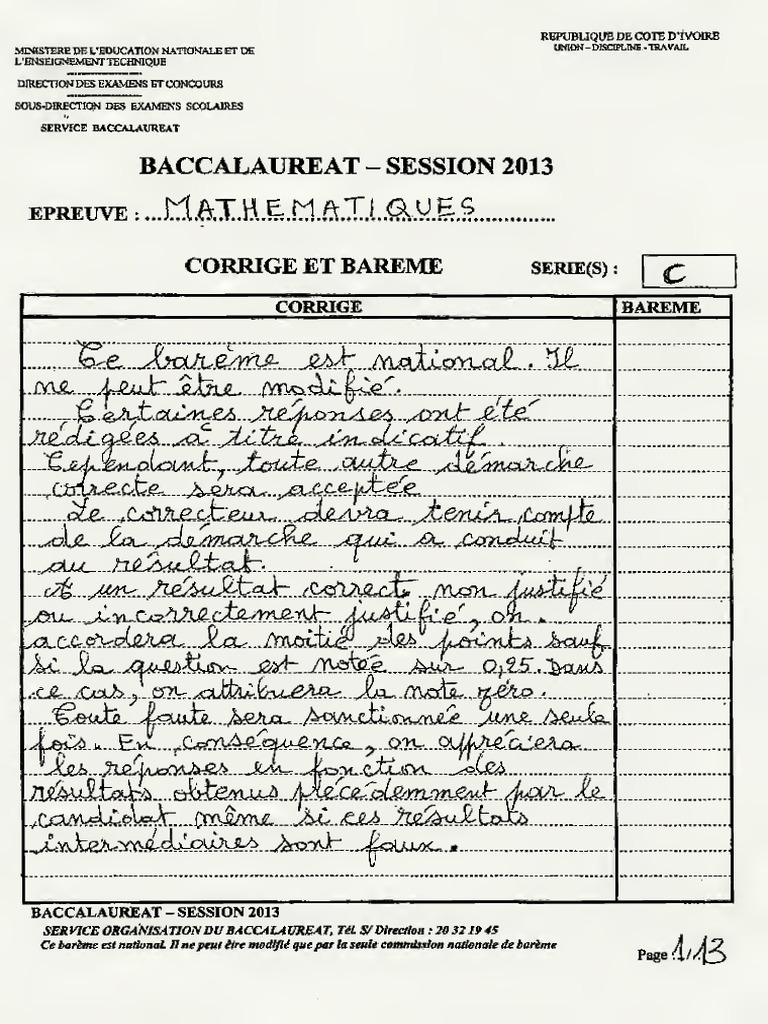 REPUBLIQUE DE COTE D'IVOIRE
UNION – DISCIPLINE - TRAVAIL
MINISTERE DE L'EDUCATION NATIONALE ET DE
L'ENSEIGNEMENT TECHNIQUE
DIRECTION DES EXAMENS ET CONCOURS
SOUS-DIRECTION DES EXAMENS SCOLAIRES
SERVICE BACCALAUREAT
BACCALAUREAT – SESSION 2013
EPREUVE : MATHEMATIQUES
CORRIGE ET BAREME SERIE(S) : C
CORRIGE BAREME
Ce barème est national. Il
ne peut être modifié.
Certaines réponses ont été
rédigées à titre indicatif.
Cependant, toute autre démarche
correcte sera acceptée
Le correcteur devra tenir compte
de la démarche qui a conduit
au résultat.
A un résultat correct non justifié
ou incorrectement justifié, on
accordera la moitié des points sauf
si la question est notée sur 0,25. Dans
ce cas, on attribuera la note zéro.
Toute faute sera sanctionnée une seule
fois. En conséquence, on appréciera
les réponses en fonction des
résultats obtenus précédemment par le
candidat même si ces résultats
intermédiaires sont faux.
BACCALAUREAT – SESSION 2013
SERVICE ORGANISATION DU BACCALAUREAT, Tél. S/ Direction : 20 32 19 45
Ce barème est national. Il ne peut être modifié que par la seule commission nationale de barème
Page 1/13